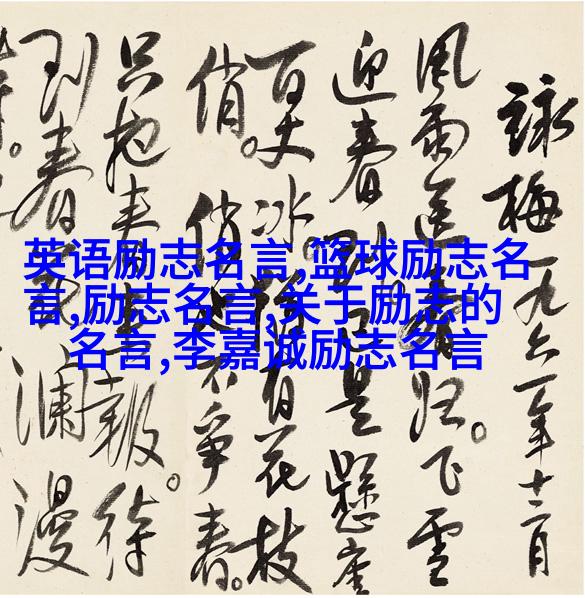 詠梅一九六一年十二月
風雨送春归。飞雪
迎春到已是懸崖
百丈冰。有花枝
俏。俏也不爭春。
只把春報。待
到漫
英语励志名言,篮球励志名
言,励志名言,关于励志的
名言,李嘉诚励志名言